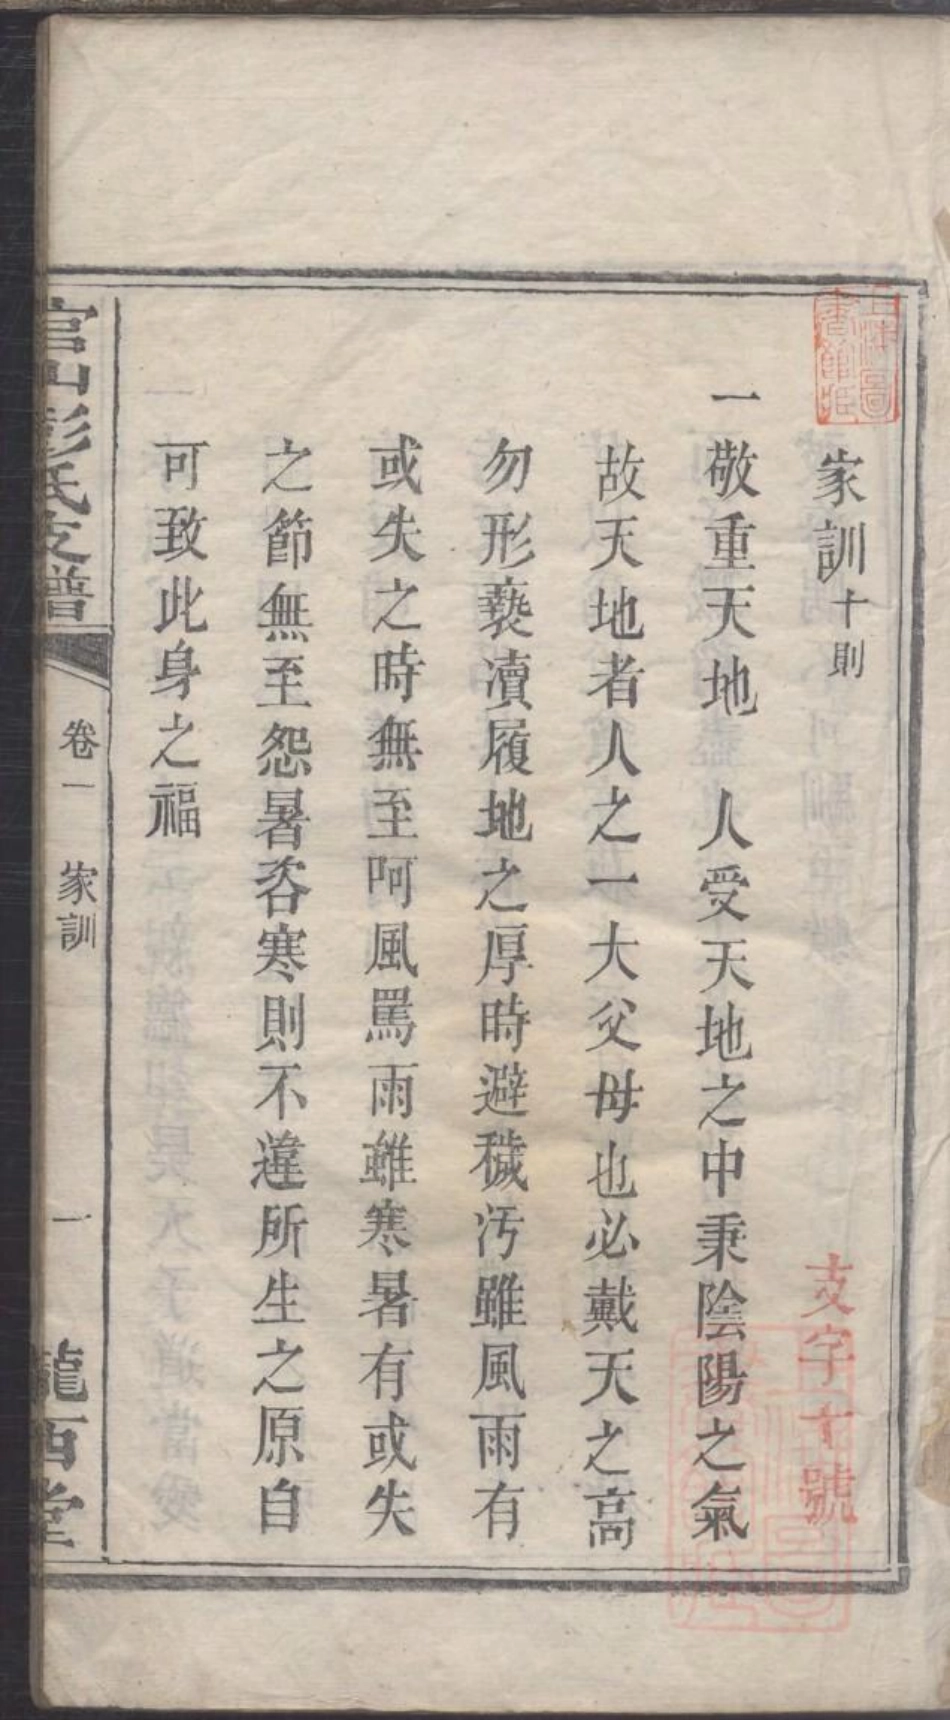 家訓十則
一敬重天地 人受天地之中秉陰陽之氣
故天地者人之一大父母也必戴天之高
勿形褻瀆履地之厚時避穢汚雖風雨有
或失之時無至阿風罵雨雖寒暑有或失
之節無至怨暑咨寒則不違所生之原自
可致此身之福
官山彭氏支譜 卷一 家訓 一 隴西堂
支字十號